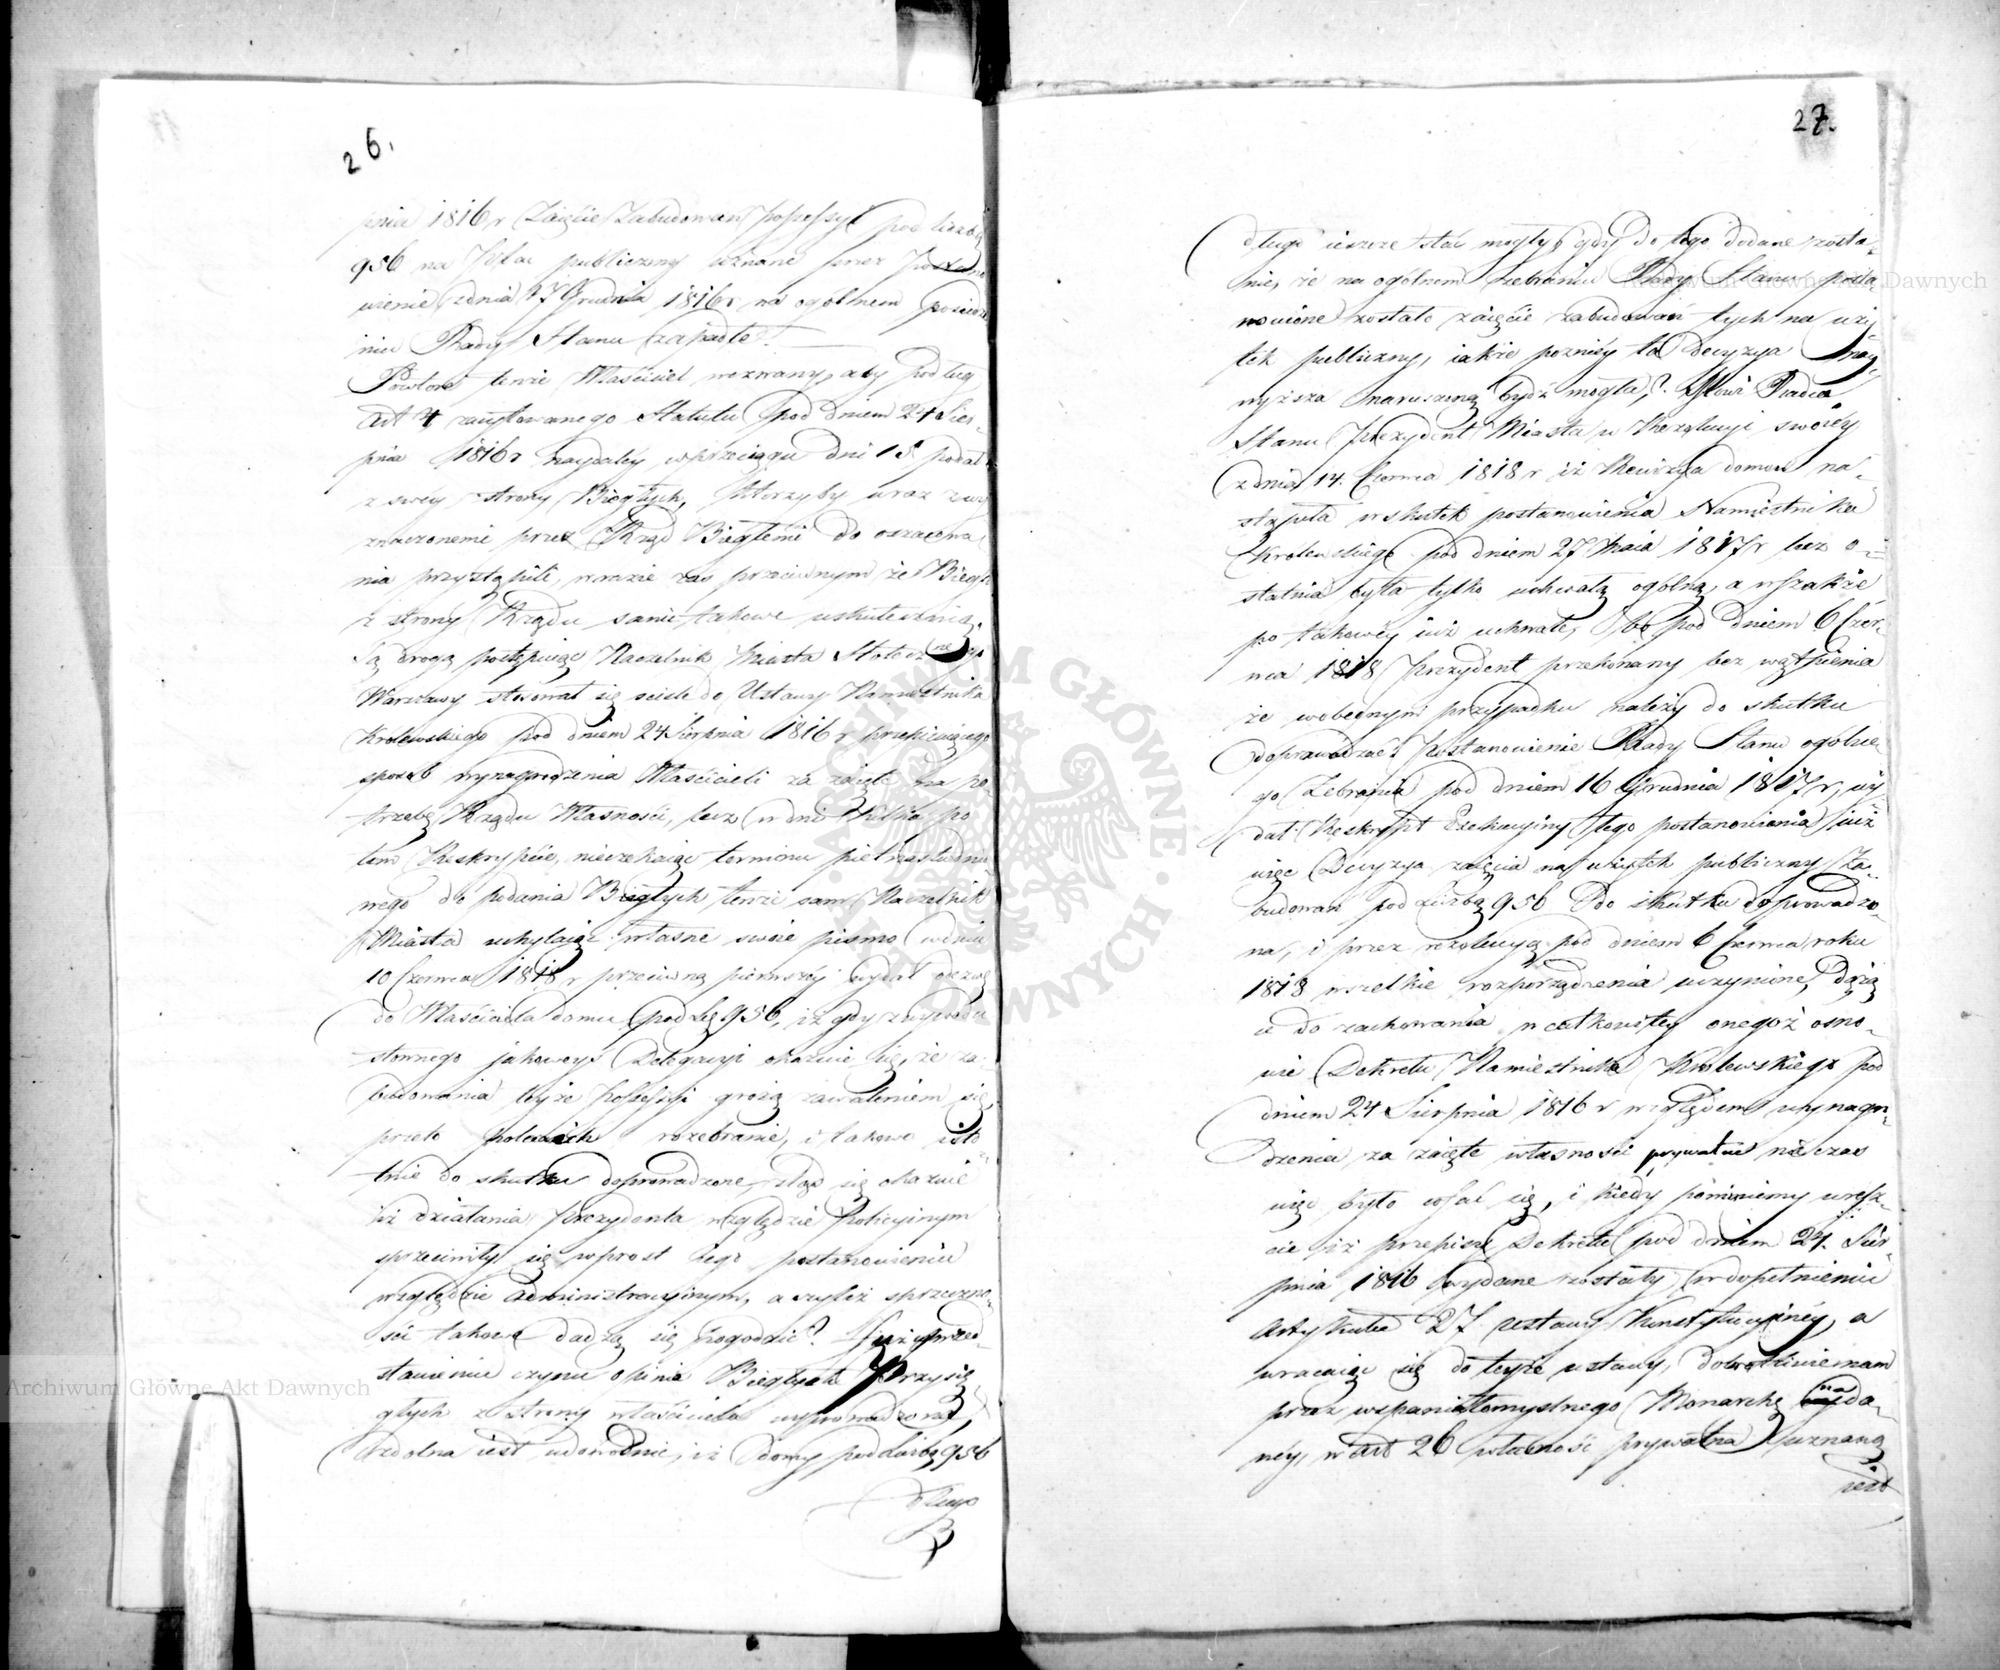 26.
pnia 1816 r Zaięcie Zabudowań possessyi pod liczbą
956 na Plac publiczny uznane przez Postano
wienie z dnia 17 Grudnia 1816 r na ogólnem posiedze
niu Rady Stanu zapadłe.
Powtóre tenże Właściciel wezwany, aby podług
Art 4 zacytowanego Statutu pod dniem 24 Sier-
pnia 1816 r naydaley w przeciągu dni 15 podał
z swey strony Biegłych, którzyby wraz z wy
znaczonemi przez Rząd Biegłemi do oszacowa
nia przystąpili, w razie zaś przeciwnym że Biegli
z strony Rządu sami takowe uskutecznią.
Tą drogą postępuiąc Naczelnik Miasta Stołecznego
Warszawy stosował się ściśle do Ustawy Namiestnika
Królewskiego pod dniem 24 Sierpnia 1816 r przepisuiącego
sposób wynagrodzenia Właścicieli za zaięte na po-
trzebę Rządu Własności, lecz w dni kilka po
tem Reskrypcie, nieczekaiąc terminu pietnastodnio
wego do podania Biegłych tenże sam Naczelnik
Miasta uchylaiąc własne swoie pismo w dniu
10 Czerwca 1818 r przeciwną pierwszey wydał odezwę
do Właściciela domu pod Lą 956, iż gdy z wywodu
słownego jakoweyś Delegacyi okazuie się, że za-
budowania teyże possessyi grożą zawaleniem się,
przeto polecić rozebranie, i takowe isto
tnie do skutku doprowadzone, ztąd się okazuie
iż działania Prezydenta względzie Policyinym
sprzeciwiły się wprost Jego postanowieniu
względzie Administracyinym, a czyliż sprzeczno-
ści takowe dadzą się pogodzić? Już w przed-
stawieniu czynu opinia Biegłych Przysię
głych z strony właściciela wyprowadzona,
zdolna iest udowodnić, iż domy pod Liczbą 956
długo
27.
długo ieszcze stać mogły, gdy do tego dodane zosta-
nie, że na ogólnem Zebraniu Rady Stanu posta
nowione zostało zaięcie zabudowań tych na uży
tek publiczny, iakże poźniey ta decyzya Nay-
wyższa naruszoną bydź mogła? Mówi Radca
Stanu Prezydent Miasta w Rezolucyi swoiey
z dnia 14. Czerwca 1818 r iż Rewizya domu na-
stąpiła w skutek postanowienia Namiestnika
Królewskiego pod dniem 27 Maia 1817 r lecz o-
statnia była tylko uchwałą ogólną, a wszakże
po takowey iuż uchwale, bo pod dniem 6 Czer-
wca 1818 Prezydent przekonany bez wątpienia
że w obecnym przypadku należy do skutku
doprowadzać Postanowienie Rady Stanu ogólne-
go Zebrania pod dniem 16 Grudnia 1817 r, wy
dał Reskrypt Exekucyiny tego postanowienia, iuż
więc Decyzya zaięcia na użytek publiczny Za-
budowań pod Liczbą 956 Do skutku doprowadzo-
na, i przez rezolucyą pod dniem 6 Czerwca roku
1818 wszelkie rozporządzenia uczynione, Dążą
ce do zachowania w całkowitey onegoż osno-
wie Dekretu Namiestnika Królewskiego pod
dniem 24 Sierpnia 1816 r względem wynagro-
dzenia za zaięte własności prywatne nie czas
więc było cofać się, i kiedy pomniemy wresz-
cie iż przepisy Dekretu pod dniem 24. Sier-
pnia 1816 wydane zostały w dopełnieniu
Artykułu 27 ustawy Konstytucyiney, a
wracaiąc się do teyże ustawy, dobrotliwie nam
przez wspaniałomyslnego Monarchę nada-
ney, w Art 26 własność prywatna uznaną
iest